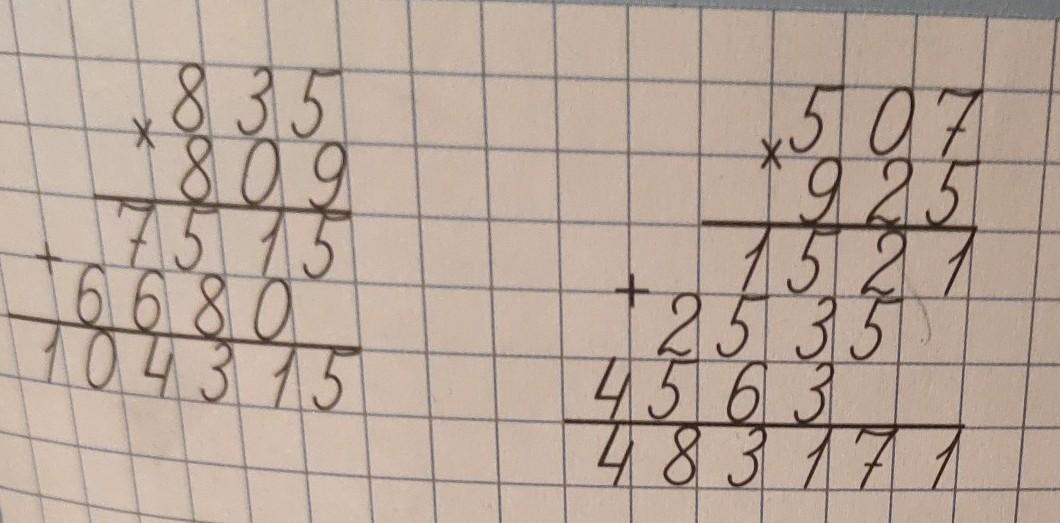 × 835
809
+ 7515
6680
104315
× 507
925
+ 1521
2535
4563
483171